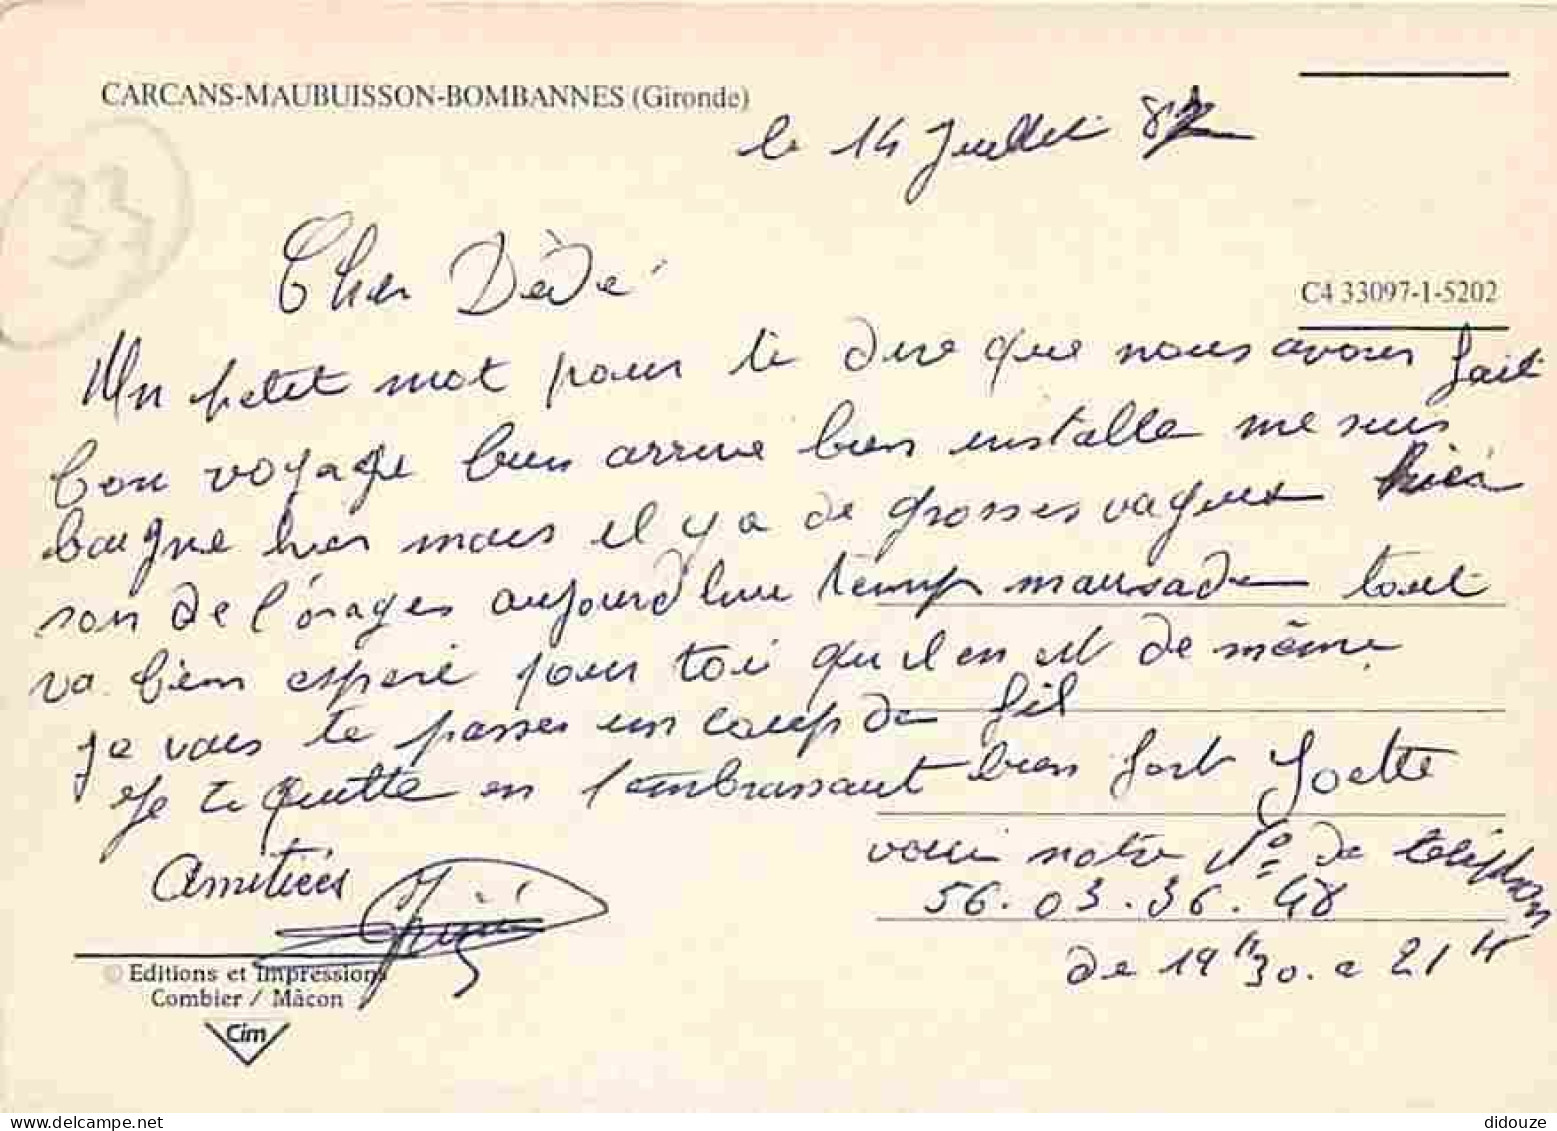 CARCANS-MAUBUISSON-BOMBANNES (Gironde)
le 14 Juillet 87
33
Cher Dèdé
C4 33097-1-5202
Un petit mot pour te dire que nous avons fait
bon voyage bien arrivé bien installe me suis
baigne hier mais il y a de grosses vagues hier
soir de l'orages aujourd'hui temp maussade tout
va bien espere pour toi qu'il en est de même
je vais te passer un coup de fil
Je te quitte en t'embrassant bien fort Yvette
voici notre N° de téléphon
56.03.36.48
de 19H30. a 21H
Amitiées
© Editions et Impressions
Combier / Mâcon
Cim
didouze